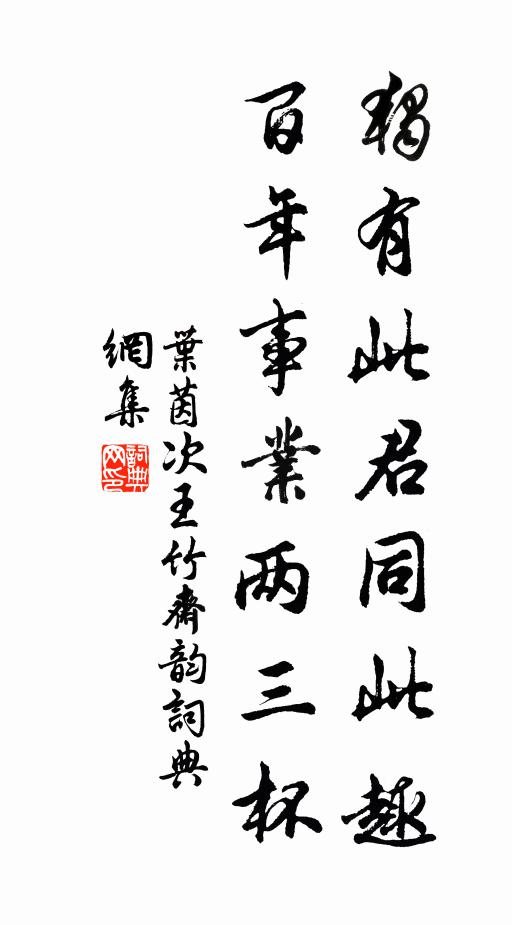 獨有此君同此趣
百年事業两三杯
葉茵次王竹齋韵詞典
網集
詞典网印